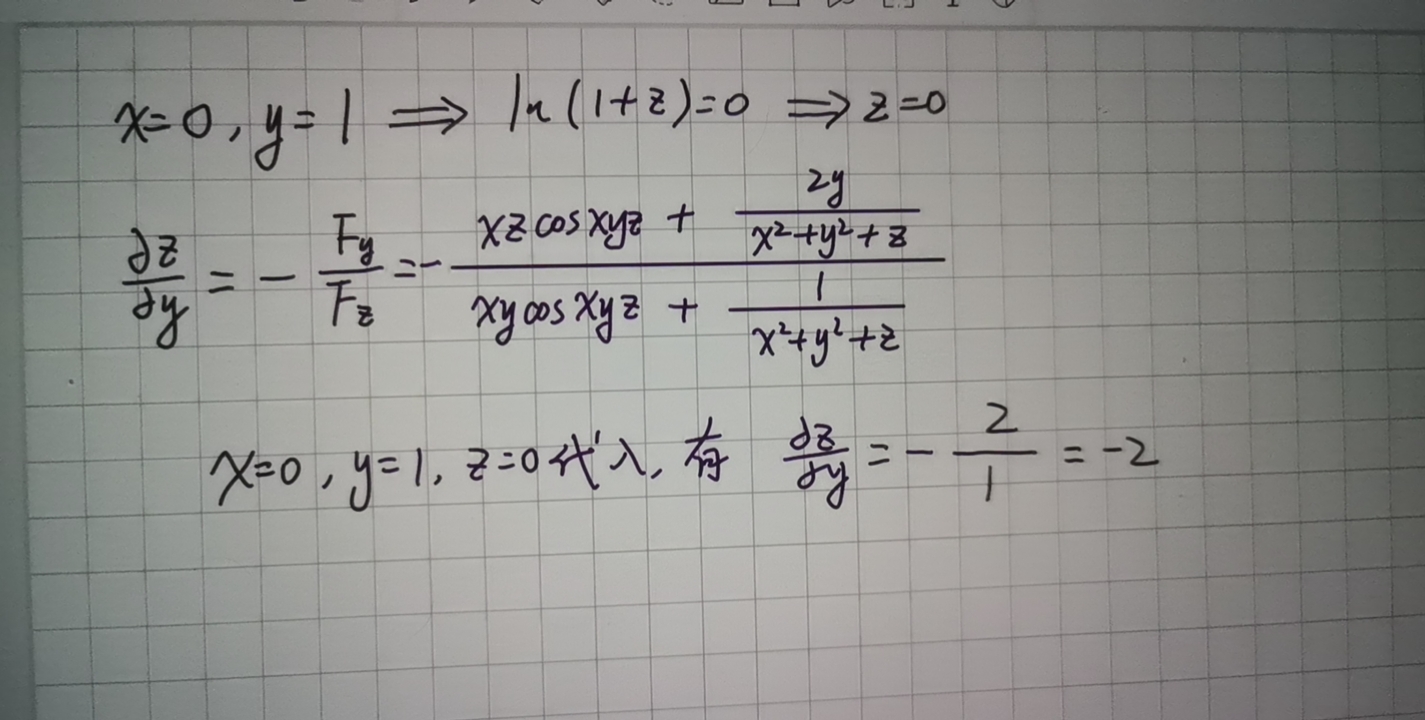 x=0, y=1 ⟹ ln(1+z)=0 ⟹ z=0
∂z/∂y = - F_y/F_z = - (xz cos xyz + 2y/(x²+y²+z))/(xy cos xyz + 1/(x²+y²+z))
x=0, y=1, z=0代入, 有 ∂z/∂y = - 2/1 = -2